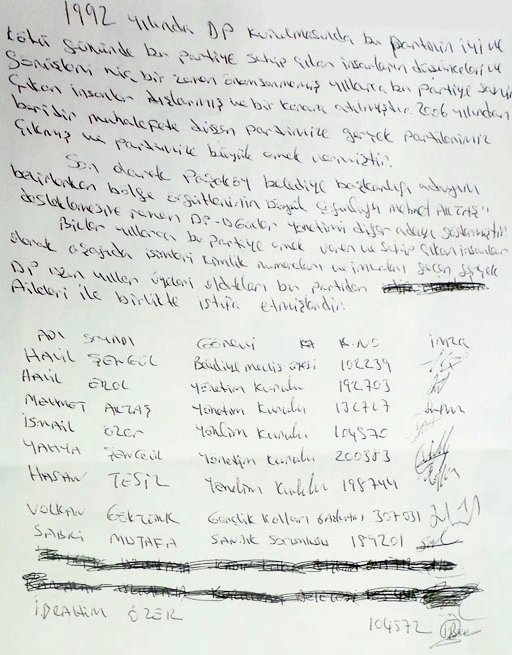 1992 yılında DP kurulmasında bu partinin iyi ve
kötü gününde bu partiye sahip çıkan insanların düşünceleri ve
görüşleri hiç bir zaman önemsenmemiş yıllarca bu partiye sahip
çıkan insanlar dışlanmış ve bir kenara atılmıştır. 2006 yılından
beri bir muhalefete düşen partimize gerçek partililerimiz
çıkmış ve partimize büyük emek vermiştir.
Son olarak Paşaköy belediye başkanlığı adayını
belirlerken bölge örgütlerinin büyük çoğunluğu mehmet AKTAŞ'ı
desteklemesine rağmen DP-UGüçler yönetimi diğer adayı göstermiştir
Bizler yıllarca bu partiye emek veren ve sahip çıkan insanlar
olarak aşağıda isimleri kimlik numaraları ve imzaları
DP uzun yıllar üyeleri oldukları bu partiden
Aileleri ile birlikte istifa etmişlerdir.
ADI SOYADI Görevi K.NO imza
HALİL ŞENGÜL Belediye meclis üyesi 102239
HALİL EROL Yönetim Kurulu 192703
MEHMET AKTAŞ Yönetim Kurulu
İSMAİL ÖZER Yönetim Kurulu 104570
YAHYA ŞENGÜL Yönetim Kurulu 200383
HASAN TEŞİL Yönetim Kurulu 198744
VOLKAN Gençlik Kolları 307031
SABRİ MUTAFA Sandık Sorumlusu 189201
İBRAHİM ÖZER 104572